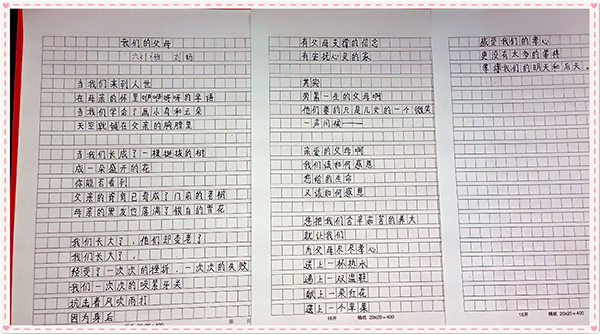 我们的父母
班 刘畅
当我们来到人世
在母亲的怀里咿咿呀呀的学语
当我们学会了画小鸟和云朵
天空就铺在父亲的胸膛里
当我们长成了一棵挺拔的树
成一朵盛开的花
你能否看到
父亲的脊背已弯成了门前的老树
母亲的黑发也落满了银白的雪花
我们长大了,他们却变老了
我们长大了,
经受了一次次的挫折,一次次的失败
我们一次次的咬紧牙关
抗击着风吹雨打
因为身后
有父母支撑的信念
有安抚心灵的家
其实
劳累一生的父母啊
他们要的只是儿女的一个微笑
一声问候——
亲爱的父母啊
我们该如何感恩
您给的生命
又该如何感恩
您把我们含辛茹苦的养大
就让我们
为父母尽尽孝心
递上一杯热水
递上一双温鞋
献上一朵红花
递上一个苹果
16开 稿纸 20x20=400
感受我们的孝心
更没有太多的等待
等待我们的明天和后天。
16开 稿纸 20x20=400